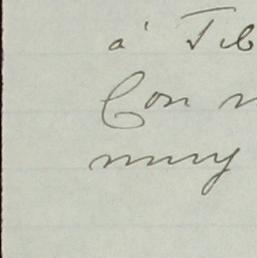 á Tib
Con m
muy